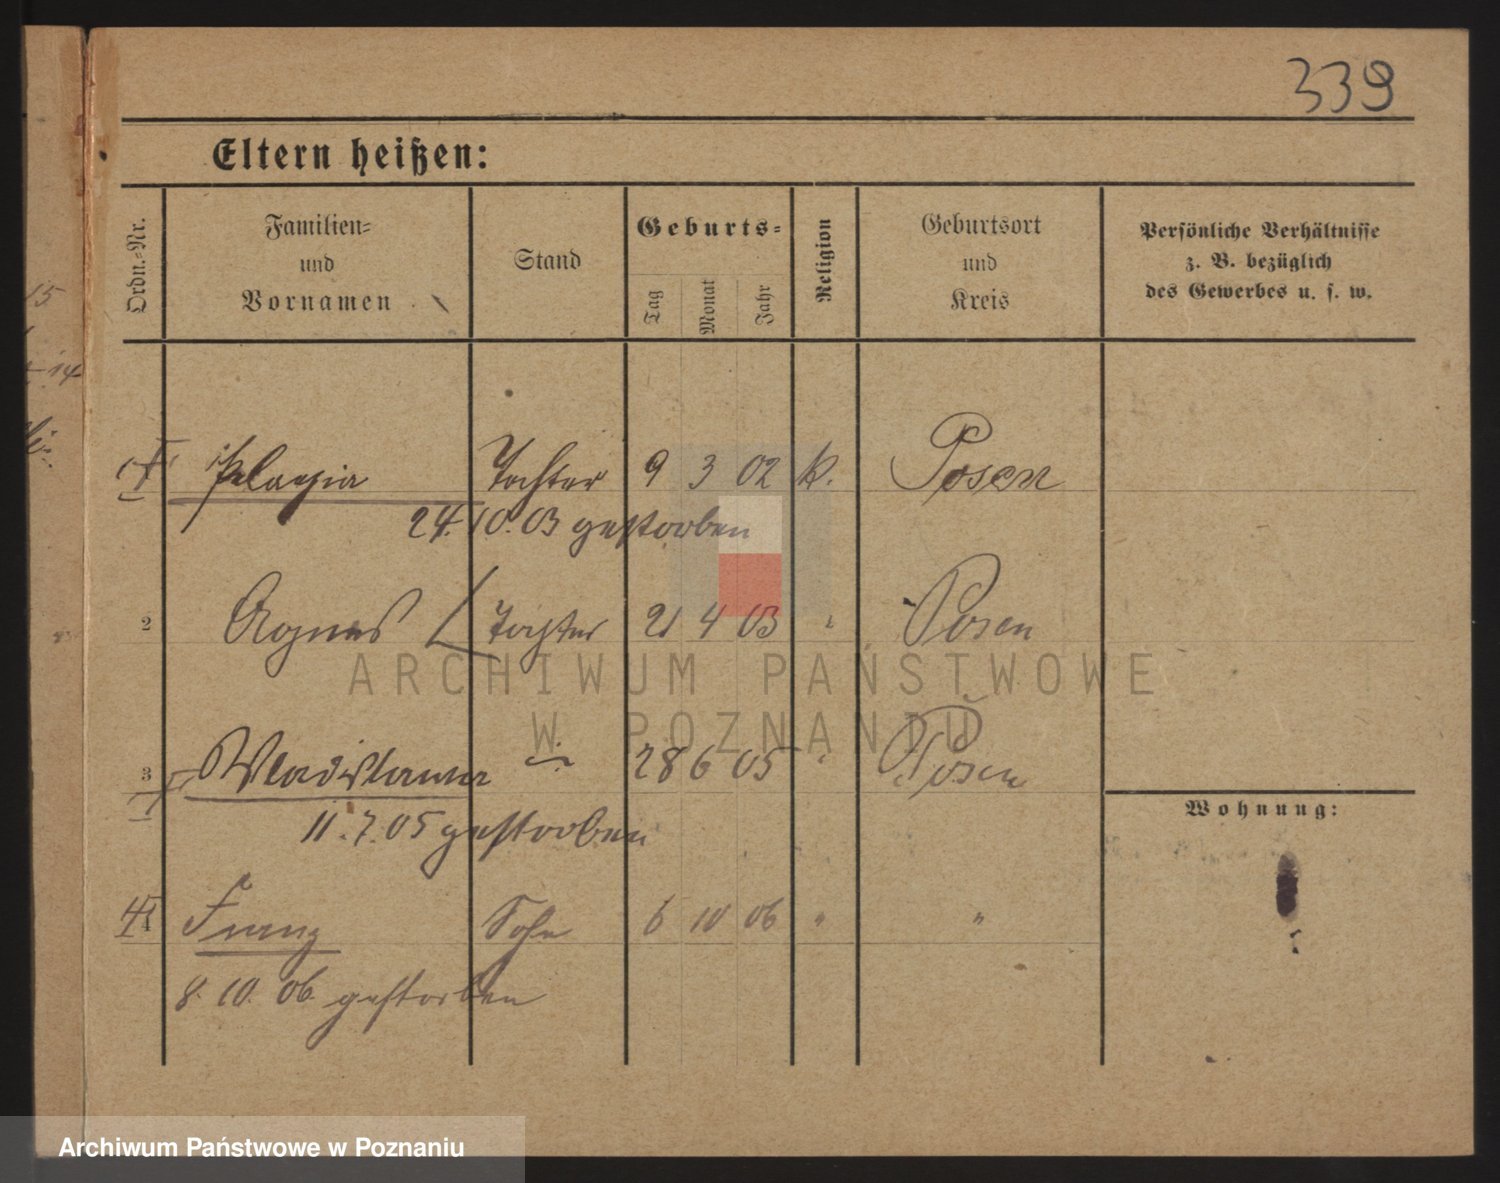 339
Eltern heißen:
Ordn.-Nr.
Familien-
und
Vornamen
Stand
Geburts-
Tag
Monat
Jahr
Religion
Geburtsort
und
Kreis
Persönliche Verhältnisse
z. B. bezüglich
des Gewerbes u. s. w.
Pelagia Tochter 9 3 02 k. Posen
24. 10. 03 gestorben
2 Agnes Tochter 21 4 03 " Posen
3 Wladislawa 28 6 05 " Posen
Wohnung:
11. 7. 05 gestorben
4 Franz Sohn 6 10 06 " "
8. 10. 06. gestorben
15
14
ARCHIWUM PAŃSTWOWE
W POZNANIU
Archiwum Państwowe w Poznaniu